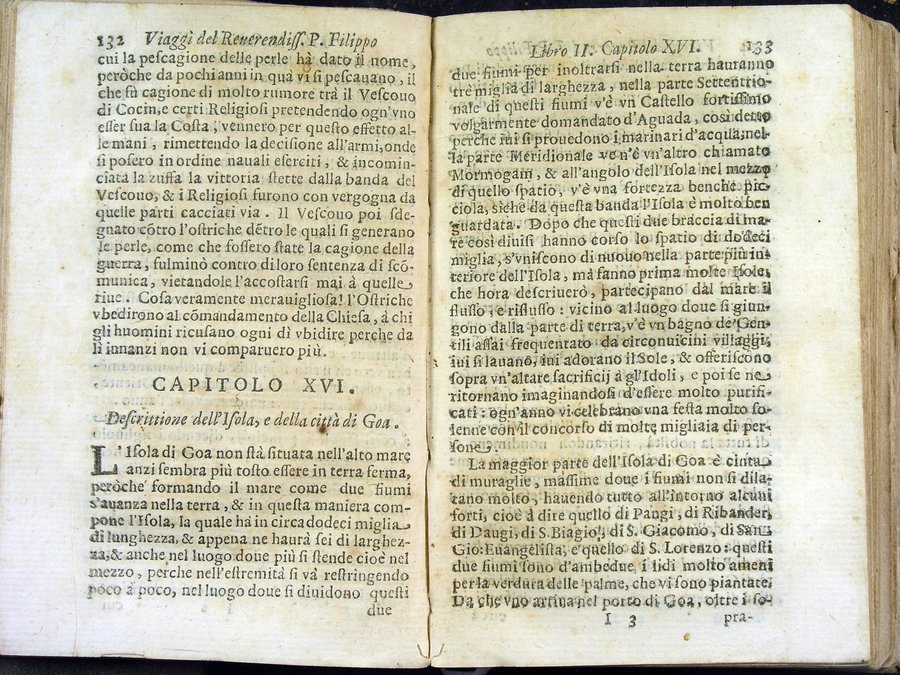 132 Viaggi del Reuerendiss. P. Filippo
cui la pescagione delle perle ha dato il nome,
peròche da pochi anni in quà vi si pescauano, il
che fù cagione di molto rumore trà il Vescouo
di Cocin, e certi Religiosi pretendendo ogn'vno
esser sua la Costa, vennero per questo effetto al-
le mani, rimettendo la decisione all'armi, onde
si posero in ordine nauali eserciti, & incomin-
ciata la zuffa la vittoria stette dalla banda del
Vescouo, & i Religiosi furono con vergogna da
quelle parti cacciati via. Il Vescouo poi sde-
gnato cõtro l'ostriche dẽtro le quali si generano
le perle, come che fossero state la cagione della
guerra, fulminò contro di loro sentenza di scõ-
munica, vietandole l'accostarsi mai à quelle
riue. Cosa veramente merauigliosa! l'Ostriche
vbedirono al cõmandamento della Chiesa, à chi
gli huomini ricusano ogni dì vbidire perche da
lì innanzi non vi comparuero più.
CAPITOLO XVI.
Descrittione dell'Isola, e della città di Goa.
L'Isola di Goa non stà situata nell'alto mare
anzi sembra più tosto essere in terra ferma,
peròche formando il mare come due fiumi
s'auanza nella terra, & in questa maniera com-
pone l'Isola, la quale hà in circa dodeci miglia
di lunghezza, & appena ne haurà sei di larghez-
za, & anche nel luogo doue più si stende cioè nel
mezzo, perche nell'estremità si và restringendo
poco à poco, nel luogo doue si diuidono questi
due
Libro II. Capitolo XVI. 133
due fiumi per inoltrarsi nella terra hauranno
trè miglia di larghezza, nella parte Settentrio-
nale di questi fiumi v'è vn Castello fortissimo
volgarmente domandato d'Aguada, così detto
perche iui si prouedono i marinari d'acqua, nel-
la parte Meridionale ve n'è vn'altro chiamato
Mormogam, & all'angolo dell'Isola nel mezzo
di quello spatio, v'è vna fortezza benche pic-
ciola, siche da questa banda l'Isola è molto ben
guardata. Dopo che questi due braccia di ma-
re così diuisi hanno corso lo spatio di dodeci
miglia, s'vniscono di nuouo nella parte più in-
teriore dell'Isola, mà fanno prima molte Isole,
che hora descriuerò, partecipano dal mare il
flusso, e riflusso: vicino al luogo doue si giun-
gono dalla parte di terra, v'è vn bagno de'Gen-
tili assai frequentato da circonuicini villaggi,
iui si lauano, iui adorano il Sole, & offeriscono
sopra vn'altare sacrificij à gl'Idoli, e poi se ne
ritornano imaginandosi d'essere molto purifi-
cati: ogn'anno vi celebrano vna festa molto so-
lenne con il concorso di molte migliaia di per-
sone.
La maggior parte dell'Isola di Goa è cinta
di muraglie, massime doue i fiumi non si dila-
tano molto, hauendo tutto all'intorno alcuni
forti, cioè à dire quello di Pangi, di Ribander,
di Daugi, di S. Biagio, di S. Giacomo, di San
Gio: Euangelista, e quello di S. Lorenzo: questi
due fiumi sono d'ambedue i lidi molto ameni
per la verdura delle palme, che vi sono piantate.
Da che vno arriua nel porto di Goa, oltre i so-
I 3 pra-